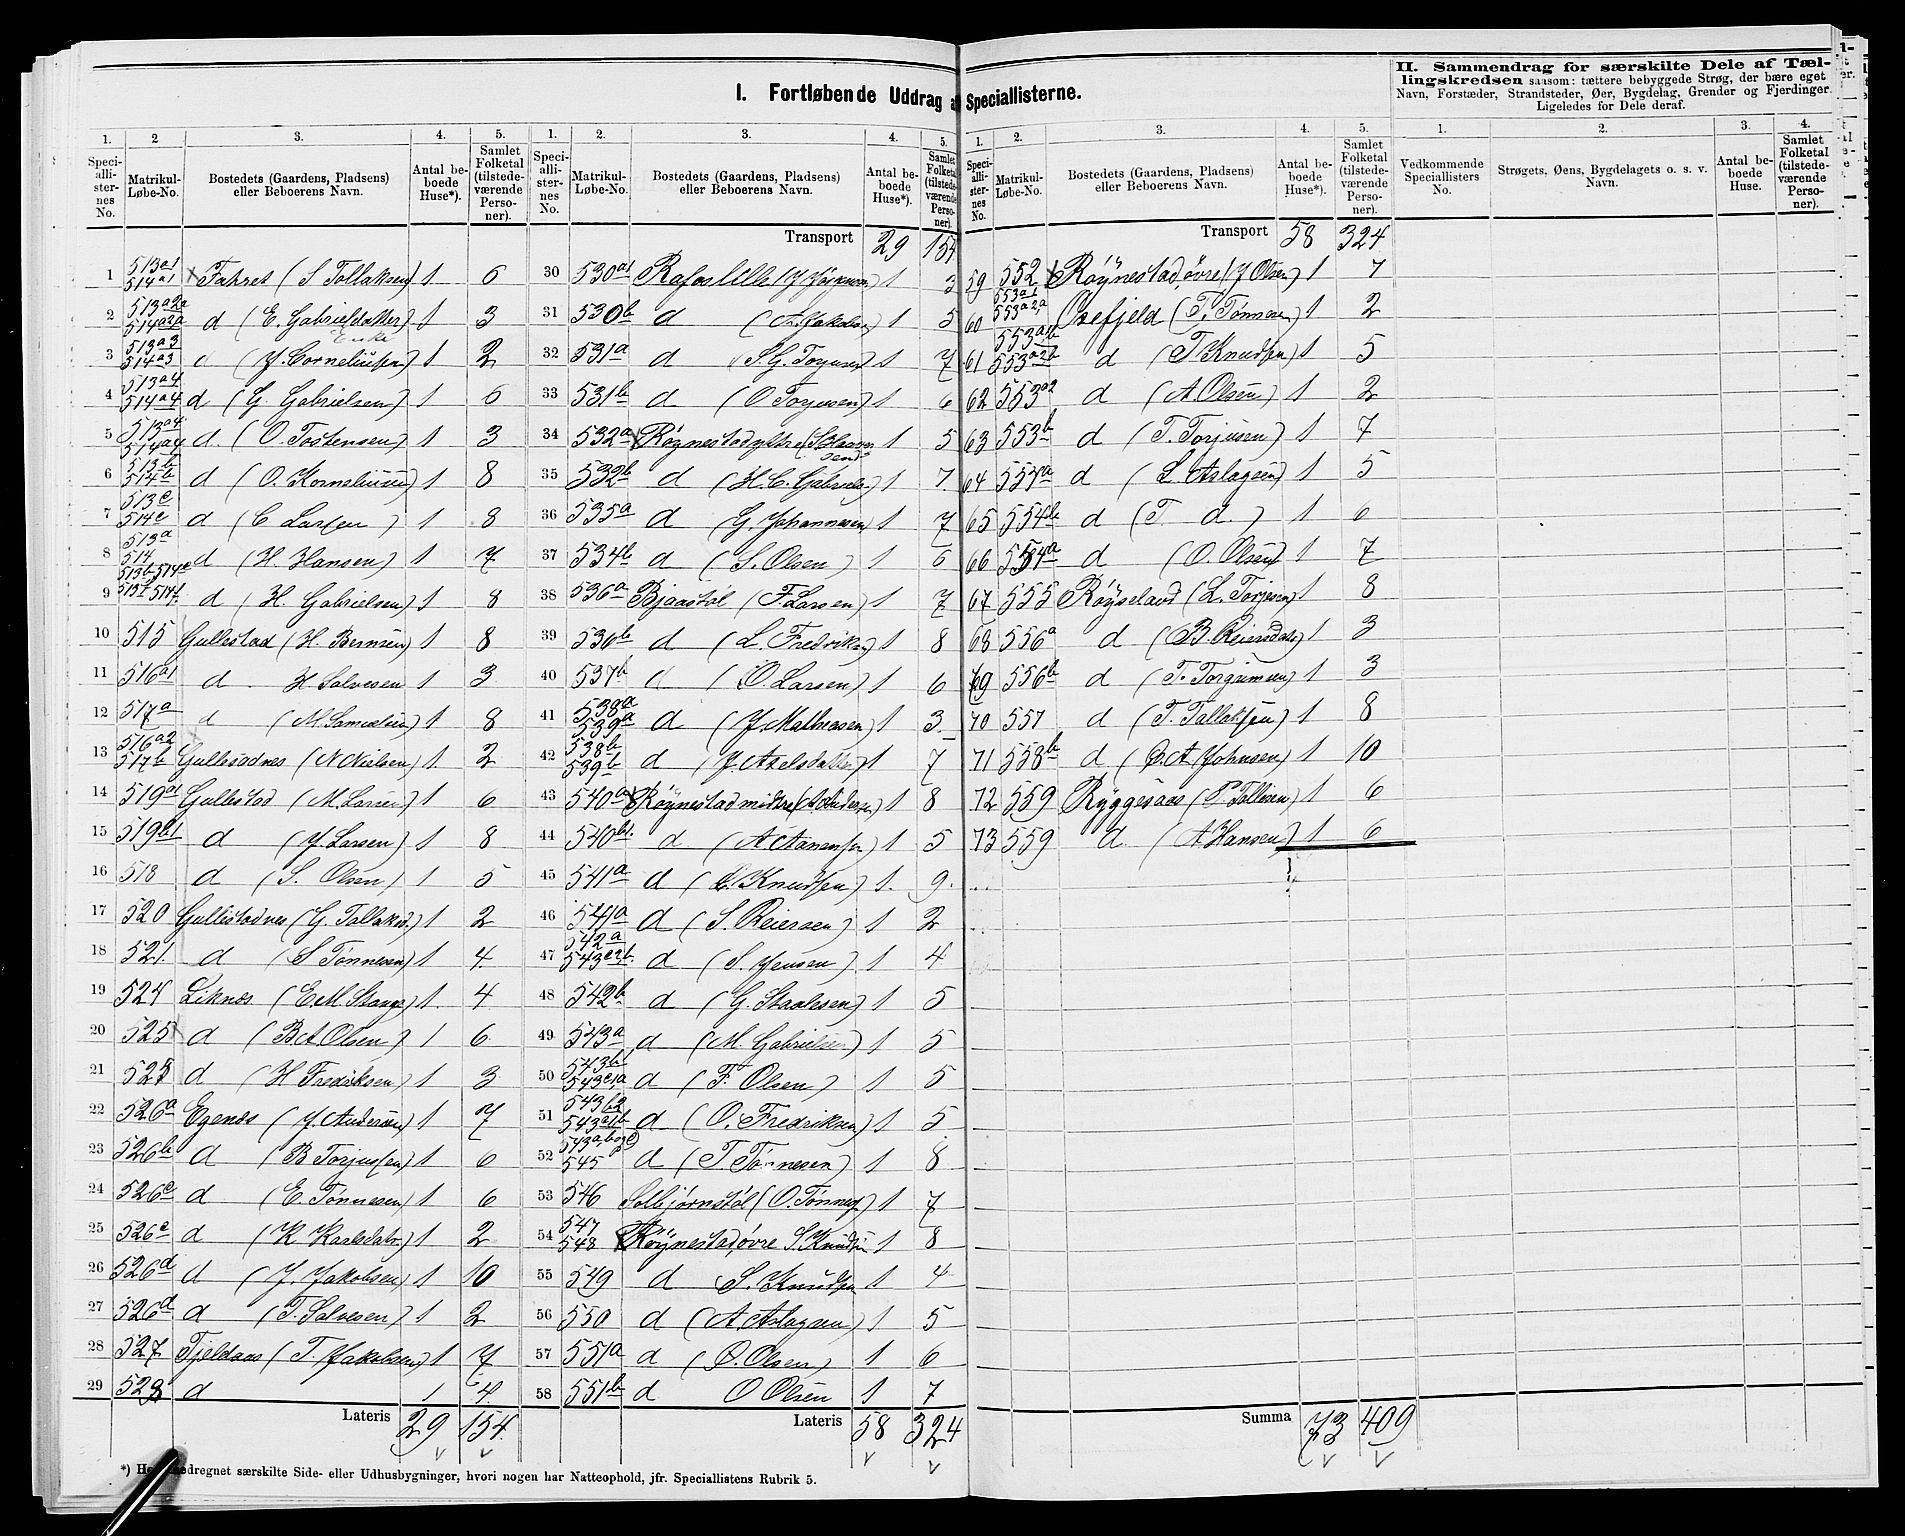 I. Fortløbende Uddrag af Speciallisterne.
II. Sammendrag for særskilte Dele af Tællingskredsen saasom: tættere bebyggede Strøg, der bære eget Navn, Forstæder, Strandsteder, Øer, Bygdelag, Grender og Fjerdinger. Ligeledes for Dele deraf.
1. 2 3. 4. 5.
Speciallisternes No. Matrikul-Løbe-No. Bostedets (Gaardens, Pladsens) eller Beboerens Navn. Antal beboede Huse*). Samlet Folketal (tilstedeværende Personer).
1 513a1 514a1 Fahret (S Tollaksen) 1 6
2 513a2a 514a2a d (E. Gabrielsdatter) 1 3
Enke
3 513a3 514a3 d (J. Corneliussen) 1 2
4 513a4 514a4 d (G. Gabrielsen) 1 6
5 513a4 514a4 d. (O. Tostensen) 1 3
6 513b 514b d (O. Korneliusen) 1 8
7 513c 514c d (C Larsen) 1 8
8 513a 514 d (H. Hansen) 1 7
9 513b, 514e 513f 514f d (H. Gabrielsen) 1 8
10 515 Gullestad (H. Berntsen) 1 8
11 516a1 d H Salvesen 1 3
12 517a d (M. Samuelsen) 1 8
13 516a2 517b Gullestadnes (N Nielsen) 1. 2
14 519a1 Gullestad (M. Larsen) 1 6
15 519b1 d (J. Larsen) 1 8
16 518 d (S. Olsen) 1 5
17 520 Gullestadnes (G. Tollaksd.) 1 2
18 521. d (S Tønnesen) 1 4.
19 524 Liknes (E.M. Stange) 1. 4
20 525 d (B A Olsen) 1 6
21 525 d (H Fredriksen) 1 3
22 526a Egenæs (J. Andersen) 1 7
23 526b d (B Torjussen) 1 6
24 526c d (E. Tønnesen) 1 6
25 526c d (K Karlsdatr.) 1 2
26 526d d (J. Jakobsen) 1 10
27 526d d (T. Salvesen) 1 2
28 527 Tjeldaas (T. Jakobsen) 1 7
29 528 d 1 4.
Lateris 29 154.
1. 2. 3. 4. 5.
Speciallisternes No. Matrikul-Løbe-No. Bostedets (Gaardens, Pladsens) eller Beboerens Navn. Antal beboede Huse*). Samlet Folketal (tilstedeværende Personer).
Transport 29 154
30 530a1 Rafos lille (J. ) 1 3
31 530b d (A. Jakobsen) 1 5
32 531a d (S. G. Torjusen) 1 7
33 531b d (O Torjusen) 1 6
34 532a Røynestad ytre (S. ) 1 5
35 532b d (H. C. Gabrielsen) 1 7.
36 535a d (G. Johannesen) 1 7
37 534b d (S. Olsen) 1 6
38 536a Bjaastøl (F. Larsen) 1 7
39 536b d (L. Fredriksen) 1 8
40 537b d (O. Larsen) 1 6
41 538a 539a d (J. Mathiasen) 1 3
42 538b 539b d (J. Axelsdatter) 1 7
43 540a Røynestad midtre (A. Andersen) 1 8
44 540b. d (A. Aanensen) 1 5
45 541a d (C. Knudsen) 1. 9.
46 541a d (S. Reiersen) 1 2
47 542a 543c2,b. d (S. Jensen) 1 4
48 542b d (G. Staalesen) 1 5
49 543a d (M. Gabrielsen) 1 5
50 543b1 543c1,a d (F. Olsen) 1 5
51 543b2 543c1b d (O. Fredriksen) 1 5
52 543a, b og c 545 d (T Tønnesen) 1 8
53 546 Solbjørnstøl (O. Tønnes.) 1 7
54 547 548 Røynestad, øvre S. Knudsen 1 8
55 549 d S. Knudsen 1 4
56 550 d (A. Aslagsen) 1 5
57 551a d (O. Olsen) 1 6
58 551b d O Olsen 1 7
Lateris 58 324
1. 2. 3. 4. 5.
Speciallisternes No. Matrikul-Løbe-No. Bostedets (Gaardens, Pladsens) eller Beboerens Navn. Antal beboede Huse*). Samlet Folketal (tilstedeværende Personer).
Transport 58 324
59 552 Røynestad, øvre (J Olsen) 1 7
60 553a1 553a2,a Oksefjeld (T. Tønnesen) 1 2
61 553a1b 553a2b d (T. Knudsen) 1 5
62 553a2 d (A. Olsen) 1 2
63 553b d (T. Torjusen) 1 7
64 554a d (L. Aslagsen) 1 5
65 554b d (T. d.) 1 6
66 554a d (O. Olsen) 1 7
67 555 Røyseland (L. Torjesen) 1 8
68 556a d (B. Reiersdatr) 1 3
69 556b d (T. Torgrimsen) 1 3
70 557 d (T. Tallaksen) 1 8
71 558b d (O. A Johnsen) 1 10
72 559 Ryggesaas (P Tallaksen) 1 6
73 559 d. (A Hansen) 1 6
Summa 73 409
1. 2. 3. 4.
Vedkommende Speciallisters No. Strøgets, Øens, Bygdelagets o. s. v. Navn. Antal beboede Huse. Samlet Folketal (tilstedeværende Personer).
*) særskilte Side- eller Udhusbygninger, hvori nogen har Natteophold, jfr. Speciallistens Rubrik 5.